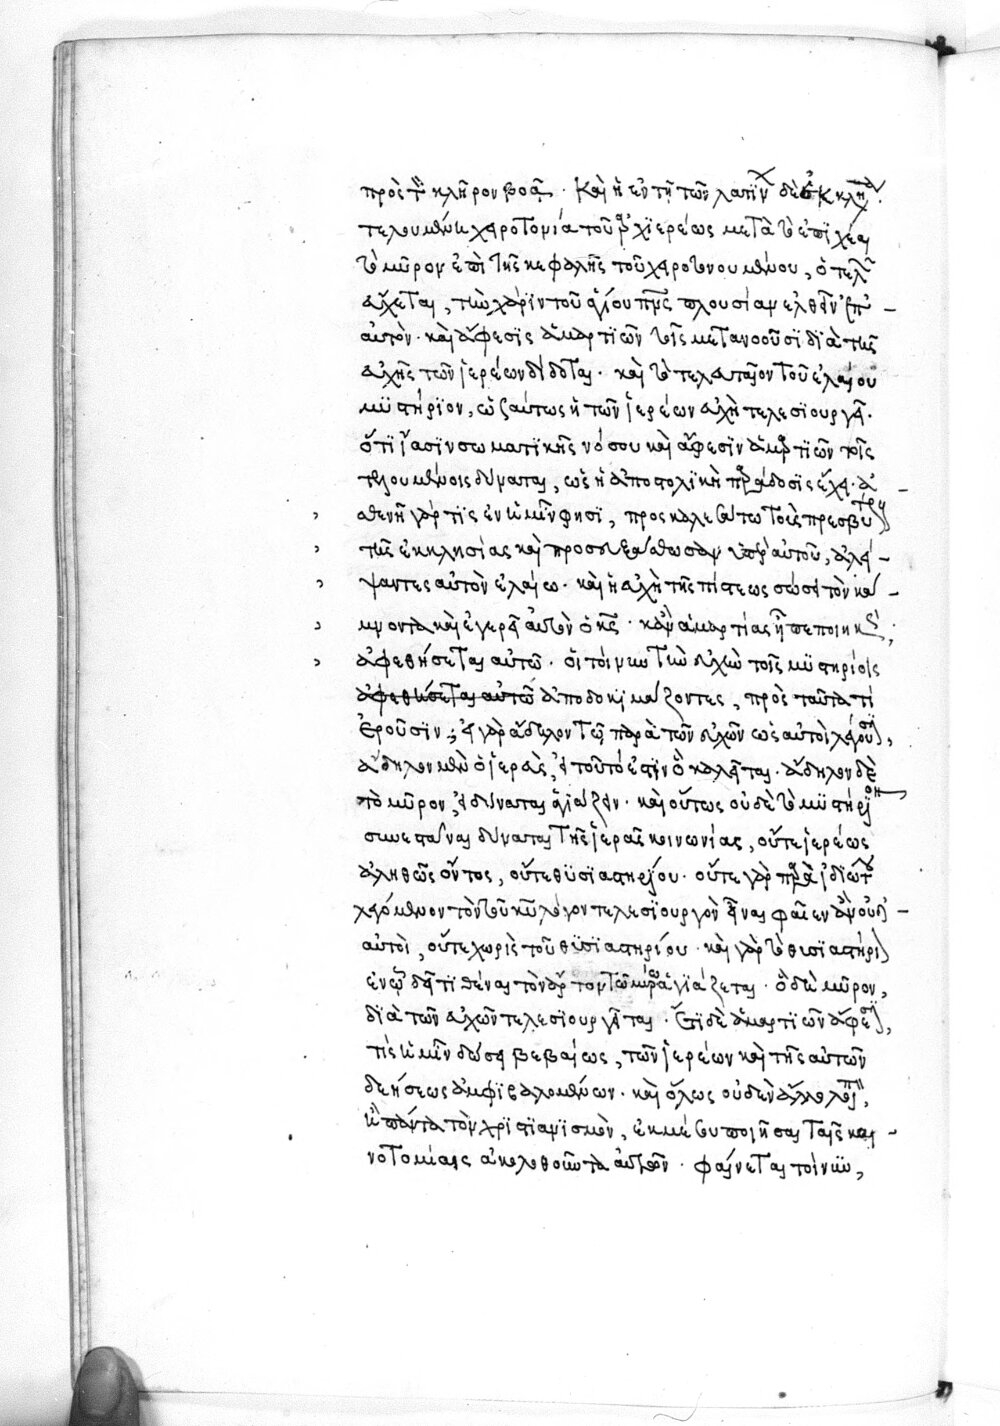 πρὸς τὸν κλῆρον βοᾷ. Καὶ ἡ ἐν τῇ τῶν λατίνων δὲ ἐκκλησίᾳ
τελουμένη χειροτονία τοῦ ἀρχιερέως μετὰ τὸ ἐπιχέαι
τὸ μῦρον ἐπὶ τῆς κεφαλῆς τοῦ χειροτονουμένου, ὁ τελῶν
εὔχεται, τὴν χάριν τοῦ ἁγίου πνεύματος πλουσίαν ἐλθεῖν ἐπ' -
αὐτὸν· καὶ ἄφεσις ἁμαρτιῶν τοῖς μετανοοῦσι διὰ τῆς
εὐχῆς τῶν ἱερέων δίδοται. καὶ τὸ τελευταῖον τοῦ ἐλαίου
μυστήριον, ὡσαύτως ἡ τῶν ἱερέων εὐχὴ τελεσιουργεῖ.
ὅτι ἴασιν σωματικῆς νόσου καὶ ἄφεσιν ἁμαρτιῶν τοῖς
τελουμένοις δύναται, ὡς ἡ ἀποστολικὴ παράδοσις ἔχει. ἀ -
σθενῆ γάρ τις ἐν ὑμῖν φησὶ, προσκαλεσάτω τοὺς πρεσβυτέρους
τῆς ἐκκλησίας καὶ προσευξάσθωσαν ὑπὲρ αὐτοῦ, ἀλεί -
ψαντες αὐτὸν ἐλαίῳ. καὶ ἡ εὐχὴ τῆς πίστεως σώσει τὸν κά -
μνοντα καὶ ἐγερεῖ αὐτὸν ὁ κς. κἂν ἁμαρτίας ᾖ πεποιηκὼς,
ἀφεθήσεται αὐτῷ. οἱ τοίνυν τὴν εὐχὴν τοῖς μυστηρίοις
ἀφεθήσεται αὐτῷ ἀποδοκιμάζοντες, πρὸς ταῦτα τί
ἐροῦσιν; εἰ γὰρ ἄδηλον τὸ παρὰ τῶν εὐχῶν ὡς αὐτοὶ λέγουσιν,
ἄδηλον μὲν ὁ ἱερεὺς, εἰ τοῦτό ἐστιν ὃ καλεῖται. ἄδηλον δὲ
τὸ μῦρον, εἰ δύναται ἁγιάζειν. καὶ οὕτως οὐδὲ τὸ μυστήριον
συνεστάναι δύναται τῆς ἱερᾶς κοινωνίας, οὔτε ἱερέως
ἀληθῶς ὄντος, οὔτε θυσιαστηρίου. οὔτε γὰρ παρὰ ἰδιώτου
λεγόμενον τὸν τοῦ κυ λόγον τελεσιουργὸν εἶναι φαῖεν ἂν οὐδ' -
αὐτοὶ, οὔτε χωρὶς τοῦ θυσιαστηρίου. καὶ γὰρ τὸ θυσιαστήριον
ἐν ᾧ δεῖ τιθέναι τὸν ἄρτον τῷ μύρῳ ἁγιάζεται. ὃ δὲ μῦρον,
διὰ τῶν εὐχῶν τελεσιουργεῖται. ἔτι δὲ ἁμαρτιῶν ἄφεσιν,
τίς ἡμῖν δώσει βεβαίως, τῶν ἱερέων καὶ τῆς αὐτῶν
δεήσεως ἀμφιβαλομένων. καὶ ὅλως οὐδὲν ἄλλο λοιπὸν,
ἢ πάντα τὸν χριστιανισμὸν, ἐκ μέσου ποιῆσαι ταῖς και -
νοτομίαις ἀκολουθοῦντα αὐτῶν. φαίνεται τοίνυν,